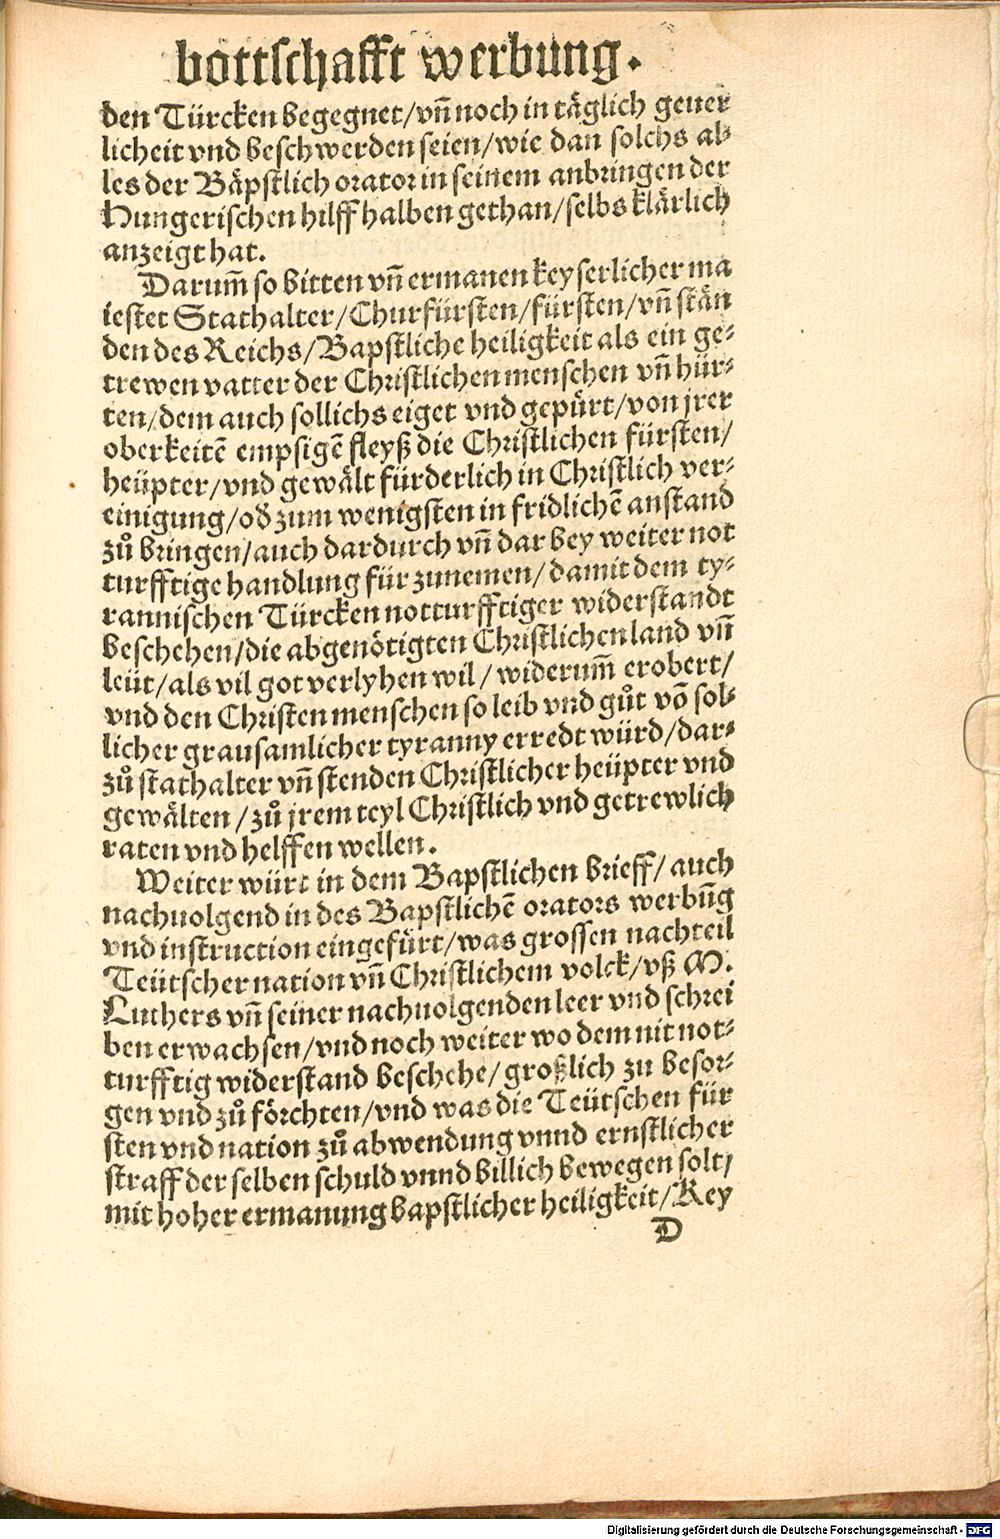 bottschafft werbung.
den Türcken begegnet/vñ noch in täglich geuer
licheit vnd beschwerden seien/wie dan solchs al-
les der Bäpstlich orator in seinem anbringen der
Hungerischen hilff halben gethan/selbs klärlich
anzeigt hat.
Darum̃ so bitten vñ ermanen keyserlicher ma
iestet Stathalter/Churfürsten/fürsten/vñ stän
den des Reichs/Bapstliche heiligkeit als ein ge-
trewen vatter der Christlichen menschen vñ hür-
ten/dem auch sollichs eiget vnd gepürt/von jrer
oberkeitẽ empsigẽ fleyß die Christlichen fürsten/
heüpter/vnd gewält fürderlich in Christlich ver-
einigung/od̃ zum wenigsten in fridlichẽ anstand
zů bringen/auch dardurch vñ darbey weiter not
turfftige handlung fürzunemen/damit dem ty-
rannischen Türcken notturfftiger widerstandt
beschehen/die abgenötigten Christlichen land vñ
leüt/als vil got verlyhen wil/widerum̃ erobert/
vnd den Christen menschen so leib vnd gůt võ sol-
licher grausamlicher tyranny erredt würd/dar-
zů stathalter vñ stenden Christlicher heüpter vnd
gewälten/zů jrem teyl Christlich vnd getrewlich
raten vnd helffen wellen.
Weiter würt in dem Bapstlichen brieff/auch
nachuolgend in des Bapstlichẽ orators werbũg
vnd instruction eingefürt/was grossen nachteil
Teütscher nation vñ Christlichem volck/vß M.
Luthers vñ seiner nachuolgenden leer vnd schrei
ben erwachsen/vnd noch weiter wo dem nit not-
turfftig widerstand beschehe/großlich zu besor-
gen vnd zů förchten/vnd was die Teütschen für
sten vnd nation zů abwendung vnnd ernstlicher
straff der selben schuld vnnd billich bewegen solt/
mit hoher ermanung bapstlicher heiligkeit/Key
D
Digitalisierung gefördert durch die Deutsche Forschungsgemeinschaft - DFG